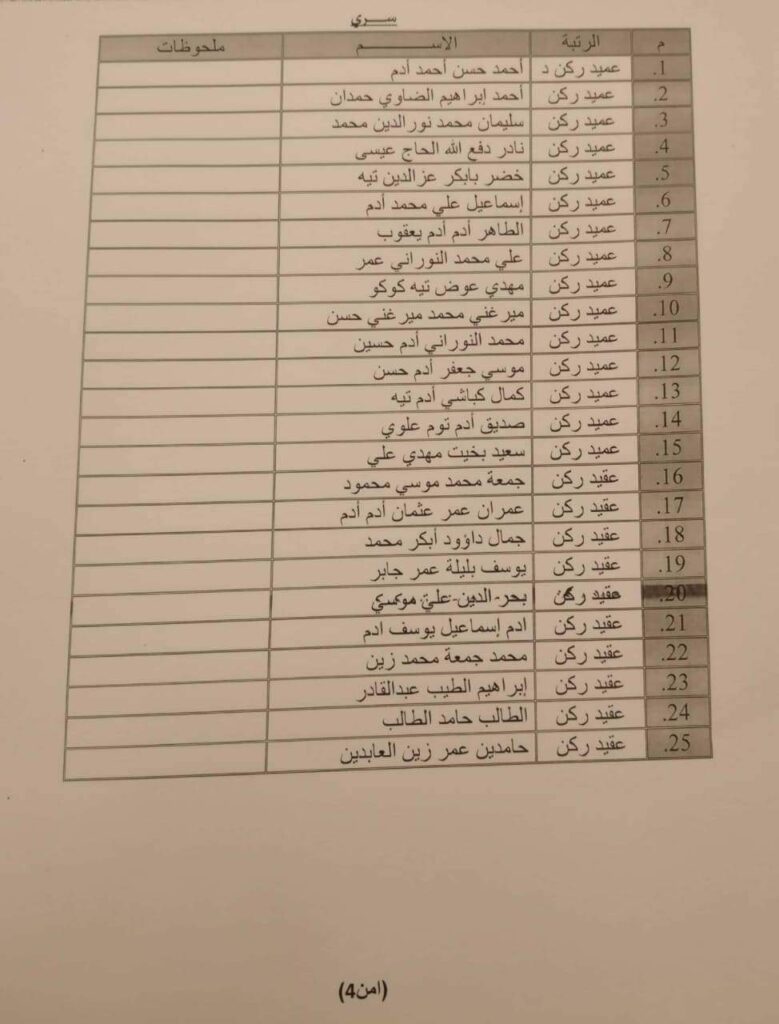 سري
م الرتبة الاسم ملحوظات
1. عميد ركن د أحمد حسن أحمد أدم
2. عميد ركن أحمد إبراهيم الضاوي حمدان
3. عميد ركن سليمان محمد نورالدين محمد
4. عميد ركن نادر دفع الله الحاج عيسى
5. عميد ركن خضر بابكر عزالدين تيه
6. عميد ركن إسماعيل علي محمد أدم
7. عميد ركن الطاهر أدم أدم يعقوب
8. عميد ركن علي محمد النوراني عمر
9. عميد ركن مهدي عوض تيه كوكو
10. عميد ركن ميرغني محمد ميرغني حسن
11. عميد ركن محمد النوراني أدم حسين
12. عميد ركن موسي جعفر أدم حسن
13. عميد ركن كمال كباشي أدم تيه
14. عميد ركن صديق أدم توم علوي
15. عميد ركن سعيد بخيت مهدي علي
16. عقيد ركن جمعة محمد موسي محمود
17. عقيد ركن عمران عمر عثمان أدم أدم
18. عقيد ركن جمال داؤود أبكر محمد
19. عقيد ركن يوسف بليلة عمر جابر
20. عقيد ركن بحر الدين علي موسي
21. عقيد ركن ادم إسماعيل يوسف ادم
22. عقيد ركن محمد جمعة محمد زين
23. عقيد ركن إبراهيم الطيب عبدالقادر
24. عقيد ركن الطالب حامد الطالب
25. عقيد ركن حامدين عمر زين العابدين
(امن4)